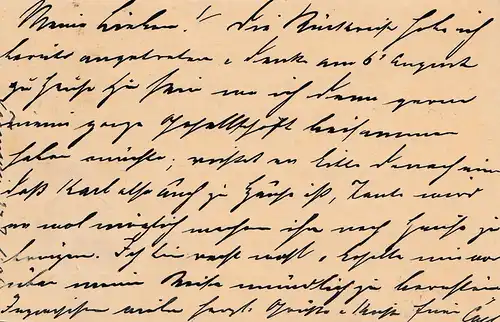 Meine Lieben! Die Rückreise habe ich
bereits angetreten u. denke am 6t August
zu Hause zu sein wo ich dann gerne
meine ganze Gesellschaft beisammen
haben möchte; richtet es bitte danach ein
daß Karl also auch zu Hause ist, Tante wird
es wol möglich machen ihn nach Hause zu
bringen. Ich bin recht wohl u. behalte mir vor
über meine Reise mündlich zu berichten
Inzwischen viele herzl. Grüße u. Kuß Euer